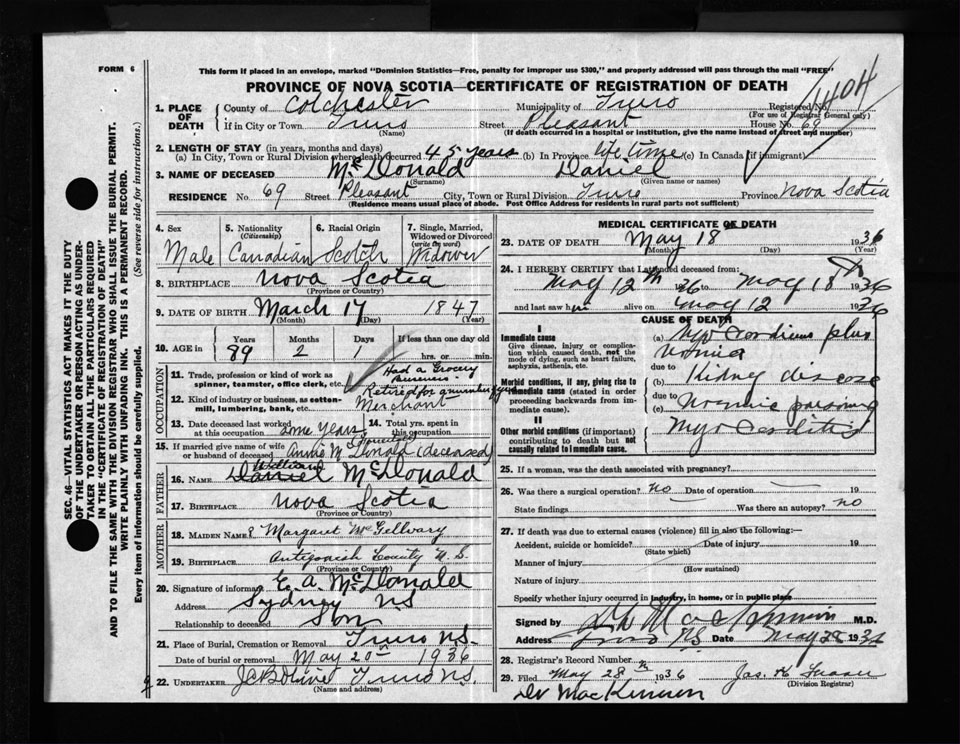 FORM 6
This form if placed in an envelope, marked "Dominion Statistics—Free, penalty for improper use $300," and properly addressed will pass through the mail "FREE"
PROVINCE OF NOVA SCOTIA—CERTIFICATE OF REGISTRATION OF DEATH
1. PLACE OF DEATH County of Colchester Municipality of Truro Registered No.
(For use of Registrar General only)
If in City or Town Truro Street Pleasant House No. 69
(Name) (If death occurred in a hospital or institution, give the name instead of street and number)
2. LENGTH OF STAY (in years, months and days)
(a) In City, Town or Rural Division where death occurred 45 years (b) In Province life time (c) In Canada (if immigrant)
3. NAME OF DECEASED McDonald Daniel
(Surname) (Given name or names)
RESIDENCE No 69 Pleasant City, Town or Rural Division Truro Province Nova Scotia
(Residence means usual place of abode. Post Office Address for residents in rural parts not sufficient)
4. Sex 5. Nationality (Citizenship) 6. Racial Origin 7. Single, Married, Widowed or Divorced (write the word)
Male Canadian Scotch Widower
8. BIRTHPLACE Nova Scotia
(Province or Country)
9. DATE OF BIRTH March 17 1847
(Month) (Day) (Year)
10. AGE in Years Months Days If less than one day old
89 2 1 hrs. or min.
OCCUPATION
11. Trade, profession or kind of work as spinner, teamster, office clerk, etc. Had a Grocery Business
12. Kind of industry or business, as cotton-mill, lumbering, bank, etc. Retired for a number of years
Merchant
13. Date deceased last worked at this occupation some years 14. Total yrs. spent in this occupation
15. If married give name of wife or husband of deceased Annie M Donald (deceased)
FATHER
16. NAME Daniel William McDonald
17. BIRTHPLACE Nova Scotia
(Province or Country)
MOTHER
18. MAIDEN NAME Margaret McGillvary
19. BIRTHPLACE Antigonish County N.S.
(Province or Country)
20. Signature of informant E. A. McDonald
Address Sydney N.S
Relationship to deceased Son
21. Place of Burial, Cremation or Removal Truro N.S.
Date of burial or removal May 20 1936
22. UNDERTAKER Truro N.S.
(Name and address)
MEDICAL CERTIFICATE OF DEATH
23. DATE OF DEATH May 18 1936
(Month) (Day) (Year)
24. I HEREBY CERTIFY that I attended deceased from:
May 12th 1936 to May 18 1936
and last saw him alive on May 12 1936
CAUSE OF DEATH
I
Immediate cause
Give disease, injury or complication which caused death, not the mode of dying, such as heart failure, asphyxia, asthenia, etc.
(a) plus
due to
Morbid conditions, if any, giving rise to immediate cause (stated in order proceeding backwards from immediate cause).
(b) Kidney disease
due to
(c)
II
Other morbid conditions (if important) contributing to death but not causally related to immediate cause.
25. If a woman, was the death associated with pregnancy?
26. Was there a surgical operation? no Date of operation 19
State findings Was there an autopsy? no
27. If death was due to external causes (violence) fill in also the following:—
Accident, suicide or homicide? Date of injury 19
(State which)
Manner of injury
(How sustained)
Nature of injury
Specify whether injury occurred in industry, in home, or in public place
Signed by M.D.
Address Truro N.S Date May 1936
28. Registrar's Record Number
29. Filed May 28 1936 Jas.
(Division Registrar)
Dr MacKinnon
SEC. 46—VITAL STATISTICS ACT MAKES IT THE DUTY OF THE UNDERTAKER OR PERSON ACTING AS UNDERTAKER TO OBTAIN ALL THE PARTICULARS REQUIRED IN THE "CERTIFICATE OF REGISTRATION OF DEATH" AND TO FILE THE SAME WITH THE DIVISION REGISTRAR WHO SHALL ISSUE THE BURIAL PERMIT.
WRITE PLAINLY WITH UNFADING INK. THIS IS A PERMANENT RECORD.
Every item of information should be carefully supplied. (See reverse side for instructions).